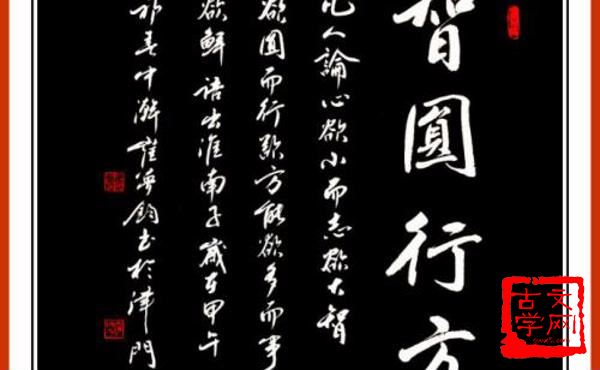 智圓行方
凡人論心欲小而志欲大智
欲圓而行欲方能欲多而事
欲鮮語出淮南子歲在甲午
春中澣崔鈞書於津門
古文学网